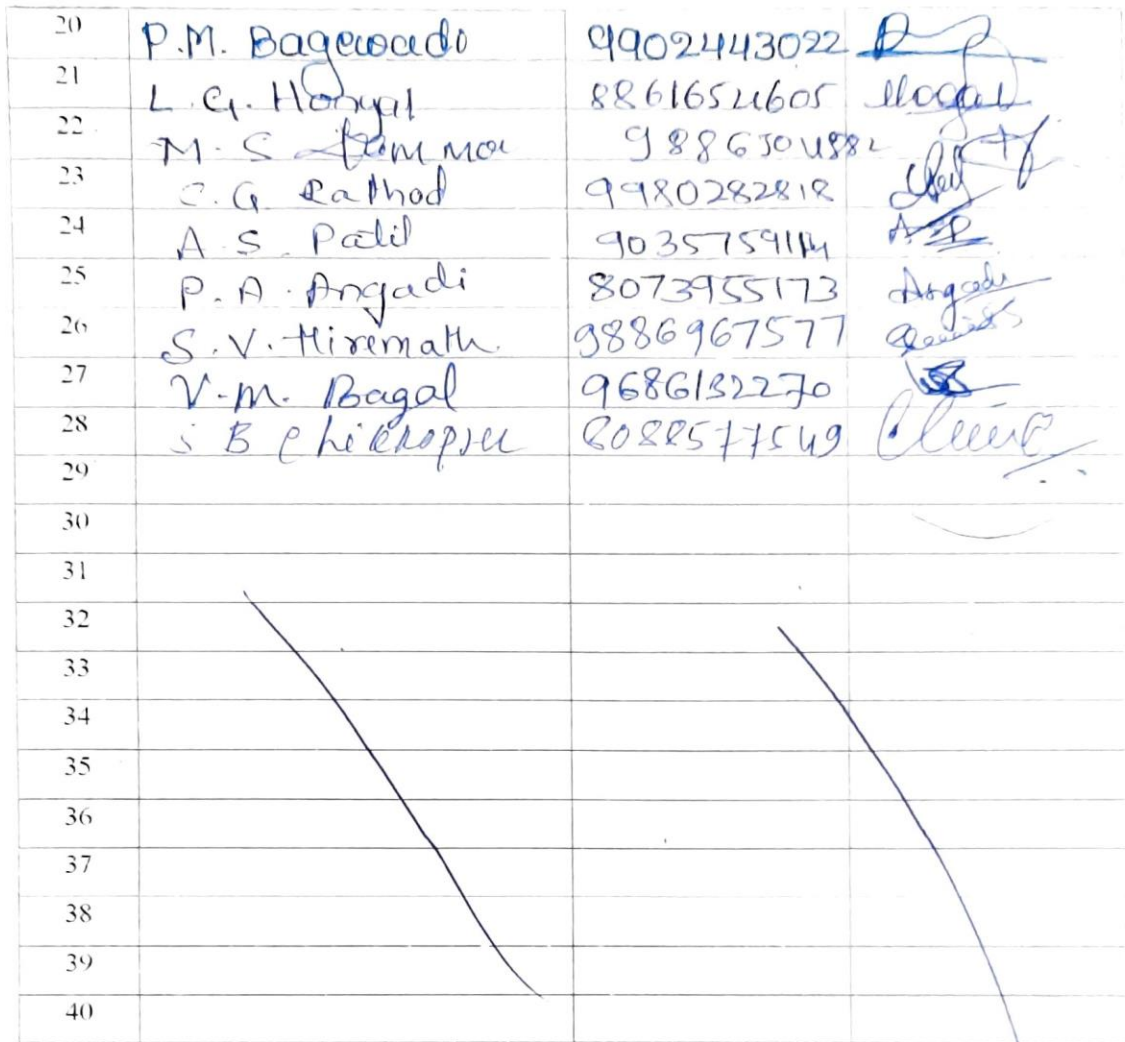 20 P.M. Bagewadi 9902443022
21 L. G. Honyal 8861654605
22 M. S. 9886504882
23 C. G. Rathod 9980282818
24 A. S. Patil 9035759114
25 P. A. Angadi 8073955173 Angadi
26 S. V. Hiremath. 9886967577
27 V. M. Bagal 9686132270
28 S B 8088577549
29
30
31
32
33
34
35
36
37
38
39
40